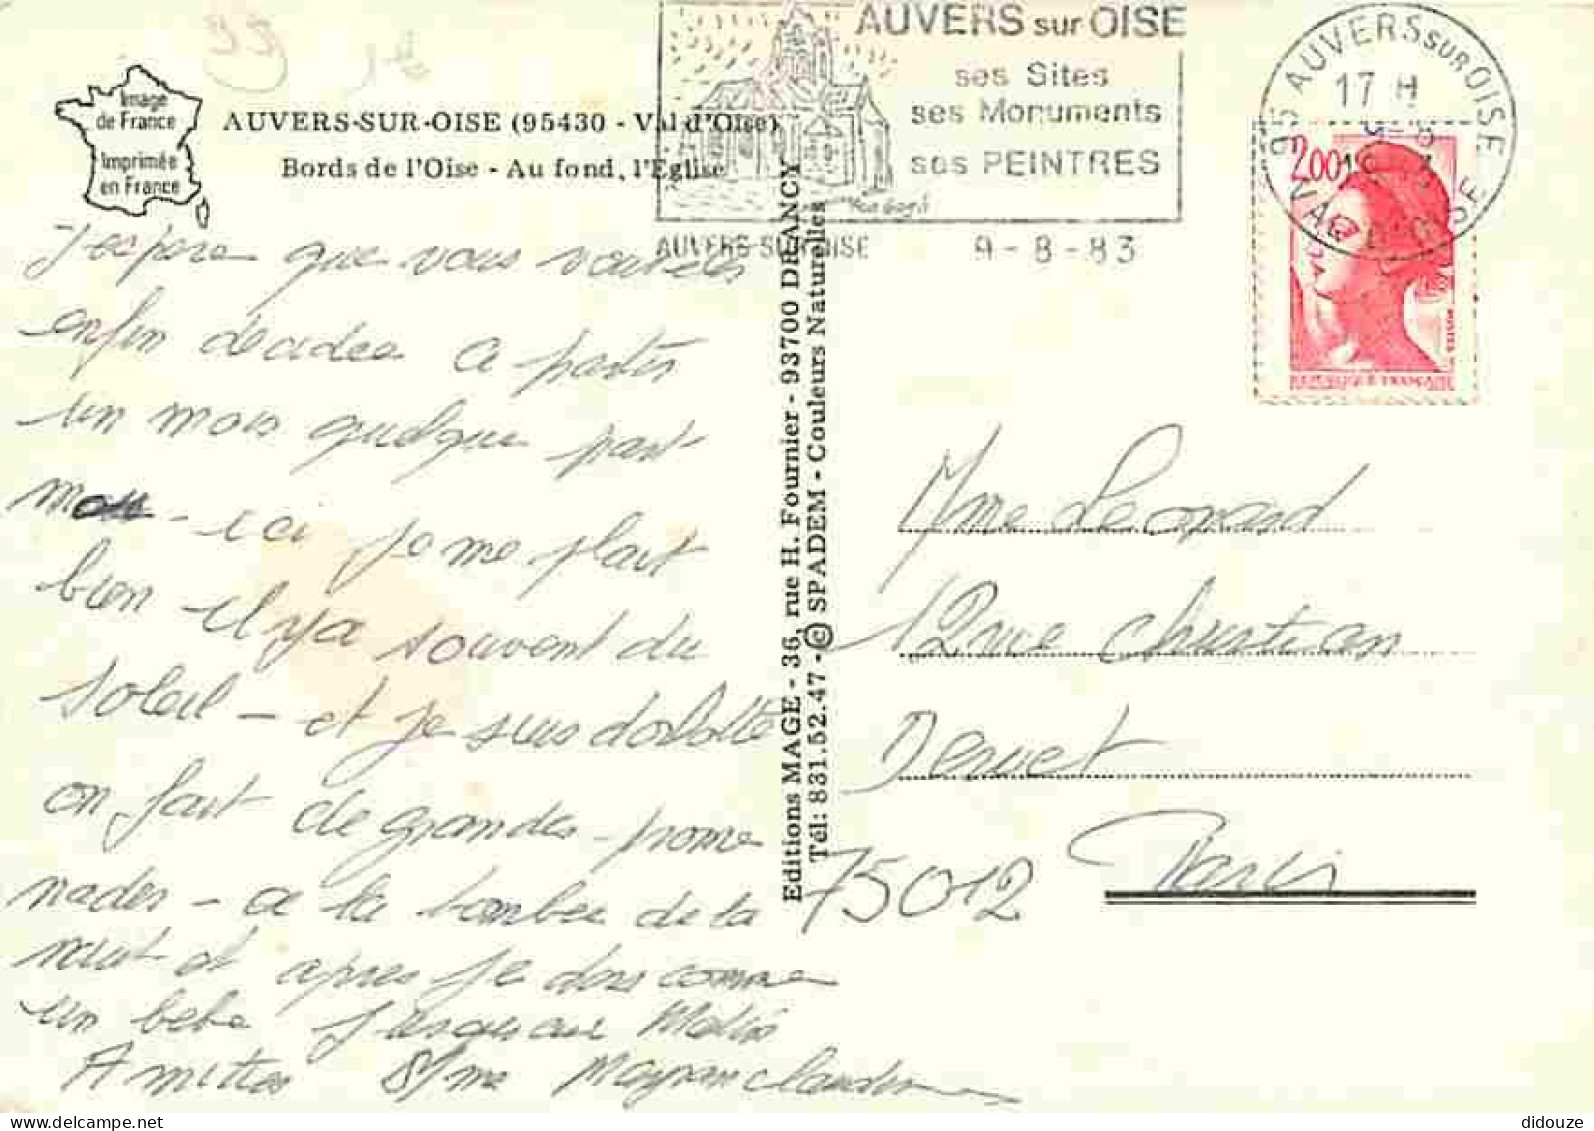 AUVERS sur OISE
ses Sites
ses Monuments
ses PEINTRES
AUVERS-SUR-OISE 9-8-83
95 AUVERS SUR OISE
17 H
VAL D'OISE
2,00
REPUBLIQUE FRANÇAISE
Image
de France
Imprimée
en France
AUVERS-SUR-OISE (95430 - Val d'Oise)
Bords de l'Oise - Au fond, l'Eglise
J'espere que vous vous etes
enfin decidee a partir
un mois quelque part
ici je me plait
bien il y a souvent du
soleil - et je suis dorlotte
on fait de grandes prome
nades - a la tombee de la
nuit et apres je dors comme
un bebe jusqu'au Matin
Amities Mme
Editions MAGE - 36, rue H. Fournier - 93700 DRANCY
Tél: 831.52.47 - © SPADEM - Couleurs Naturelles
Mme Leopard
12 rue Christian
Dewet
75012 Paris
didouze